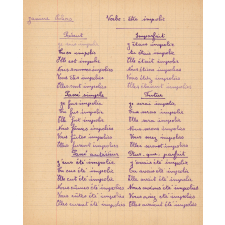 Verbe : être impolie
Présent
Imparfait
Je suis impolie
J'étais impolie
Tu es impolie
Tu étais impolie
Elle est impolie
Elle était impolie
Nous sommes impolies
Nous étions impolies
Vous êtes impolies
Vous étiez impolies
Elles sont impolies
Elles étaient impolies
Passé simple
Futur
Je fus impolie
Je serai impolie
Tu fus impolie
Tu seras impolie
Elle fut impolie
Elle sera impolie
Nous fûmes impolies
Nous serons impolies
Vous fûtes impolies
Vous serez impolies
Elles furent impolies
Elles seront impolies
Passé antérieur
Plus que parfait
J'eus été impolie
J'avais été impolie
Tu eus été impolie
Tu avais été impolie
Elle eut été impolie
Elle avait été impolie
Nous eûmes été impolies
Nous avions été impolies
Vous eûtes été impolies
Vous aviez été impolies
Elles eurent été impolies
Elles avaient été impolies